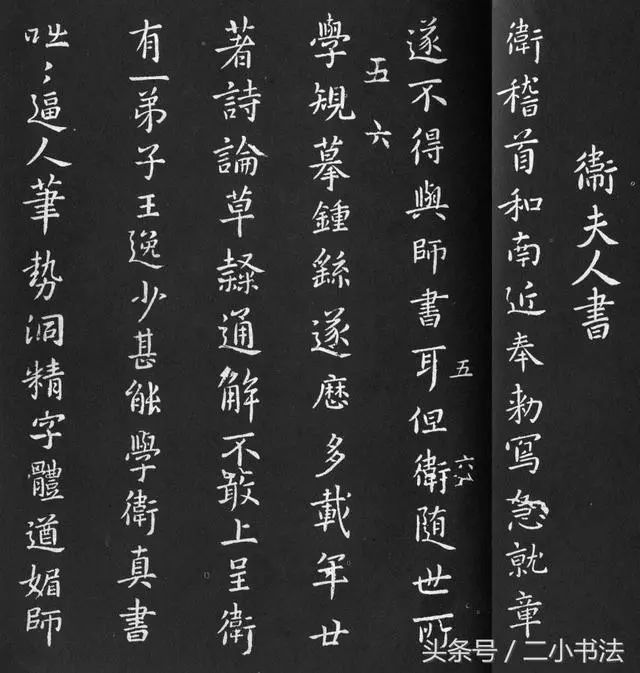 衛夫人書
衛稽首和南近奉勑寫急就章
遂不得與師書耳但衛随世所
五 六八
五六
學規摹鍾繇遂歷多載年廿
著詩論草隸通解不敢上呈衛
有一弟子王逸少甚能學衛真書
咄〻逼人筆勢洞精字體遒媚師
头条号 / 二小书法